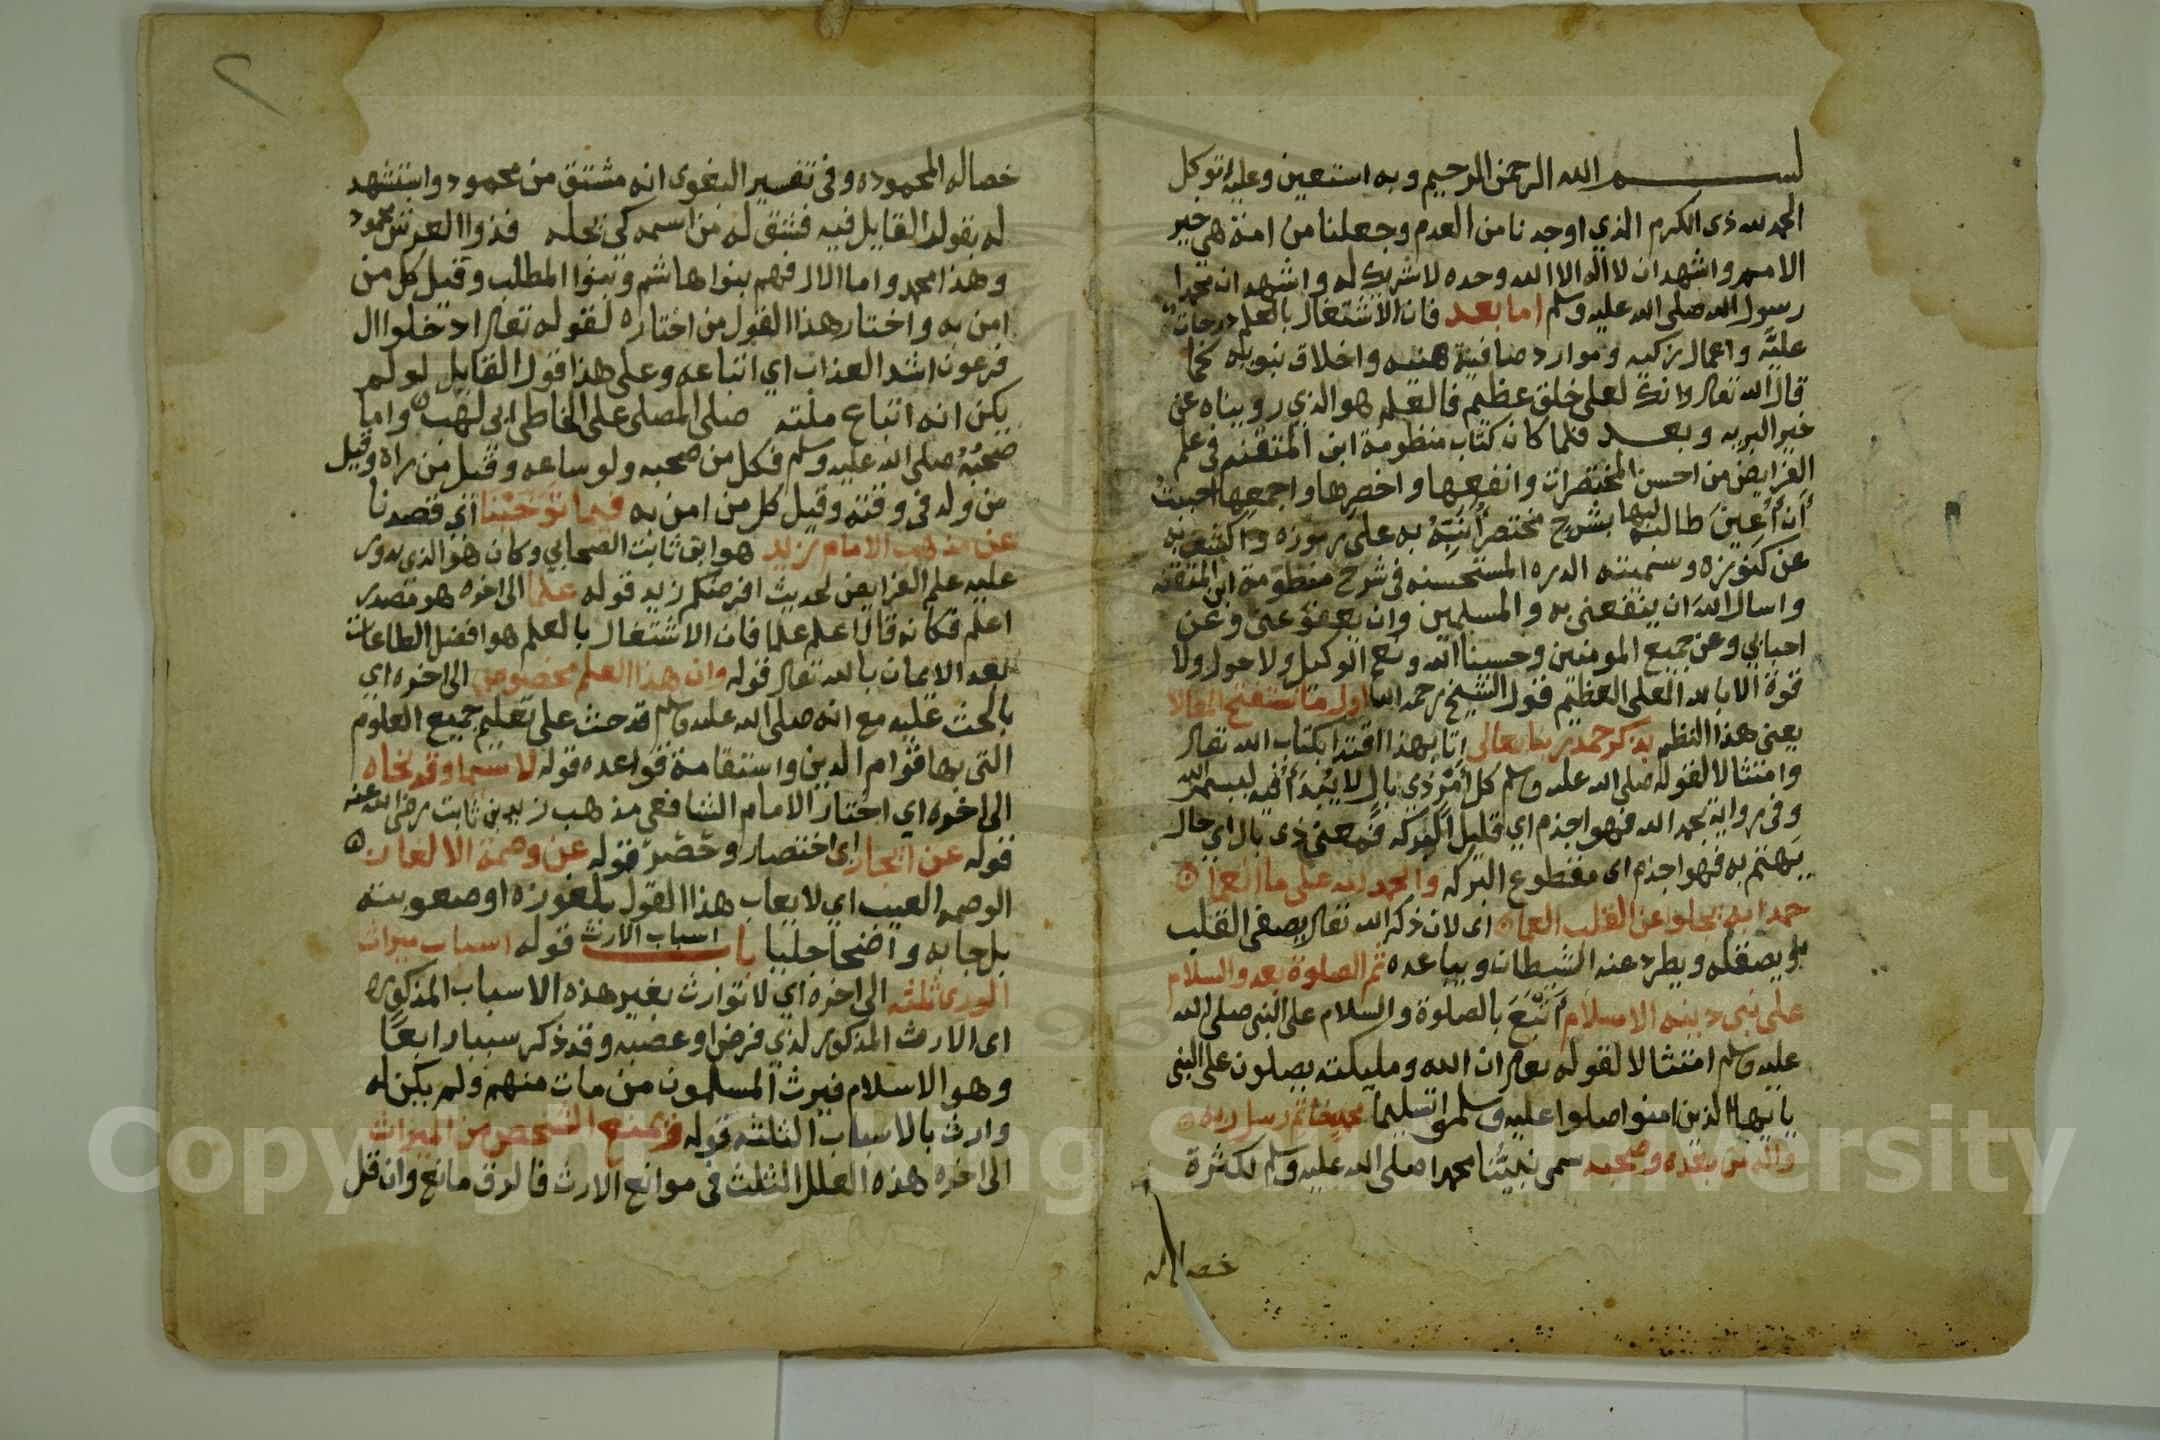 بســـم الله الرحمن الرحيم وبه استعين وعليه اتوكل
الحمد لله ذى الكرم الذي اوجدنا من العدم وجعلنا من امة هي خير
الامم واشهد ان لا اله الا الله وحده لا شريك له واشهد ان محمدا
رسول الله صلى الله عليه وسلم اما بعد فان الاشتغال بالعلم درجات
عليّه واعمال زكيه وموارد صافية هنيه واخلاق نبويه كما
قال الله تعالى وانك لعلى خلق عظيم فالعلم هو الذي رويناه عن
خير البريه وبعـد فلما كان كتاب منظومة ابن المتقنه في علم
الفرايض من احسن المختصرات وانفعها واخصرها واجمعها احببت
أن أُعِينَ طالبيها بشرح مختصر أُنَبِّهُ به على رموزه واكشف به
عن كنوزه وسميته الدره المستحسنه في شرح منظومة ابن المتقنه
واسال الله ان ينفعنى به والمسلمين وان يعفو عنى وعن
احبابي وعن جميع المومنين وحسبنا الله ونعم الوكيل ولا حول ولا
قوة الا بالله العلى العظيم قول الشيخ رحمه الله اول ما نستفتح المقالا
يعنى هذا النظم بذكر حمد ربنا تعالى اتا بهذا اقتدا بكتاب الله تعالى
وامتثالا لقوله صلى الله عليه وسلم كل أمْر ذي بال لا يُبْدَأ فيه ببسم الله
وفى رواية بحمد الله فهو اجذم اي قليل البركه فمعنى ذى بال اي حال
يهتم به فهو اجذم اى مقطوع البركه والحمد لله على ما انعما
حمدا به يجلوا عن القلب العما اى لان ذكر الله تعالى يصفى القلب
ويصقله ويطرد عنه الشيطان ويباعده ثم الصلوة بعد والسلام
على نبي دينه الاسلام أتْبَعَ بالصلوة والسلام على النبى صلى الله
عليه وسلم امتثالا لقوله تعالى ان الله ومليكته يصلون على النبى
يا ايها الذين امنوا صلوا عليه وسلموا تسليما محمد خاتم رسل ربه
واله من بعده وصحبه سمى نبيّنا محمدا صلى الله عليه وسلم لكثرة
خصاله
٢
خصاله المحموده وفى تفسير البغوى انه مشتق من محمود واستشهد
له بقول القايل فيه فشق له من اسمه كى يجله فذوا العرش محمود
وهذا محمد واما الال فهم بنوا هاشم وبنوا المطلب وقيل كل من
امن به واختار هذا القول من اختاره لقوله تعالى ادخلوا ال
فرعون اشد العذاب اي اتباعه وعلى هذا قول القايل لو لم
يكن اله اتباع ملته صلى المصلى على الخاطى ابى لهب واما
صحبُهُ صلى الله عليه وسلم فكل من صحبه ولو ساعه وقيل من راه وقيل
من ولد فى وقته وقيل كل من امن به فيما تَوَخّيْنا اي قصدنا
عن مذهب الامام زيد هو ابن ثابت الصحابي وكان هو الذى يدور
عليه علم الفرايض لحديث افرضكم زيد قوله علما الى اخره هو مصدر
اعلم فكانه قال اعلم علما فان الاشتغال بالعلم هو افضل الطاعات
بعد الايمان بالله تعالى قوله وان هذا العلم مخصوص الى اخره اي
بالحث عليه مع انه صلى الله عليه وسلم قد حث على تعليم جميع العلوم
التى بها قوام الدين واستقامة قواعده قوله لا سيما وقد نحاه
الى اخره اي اختار الامام الشافعى مذهب زيد بن ثابت رضى الله عنه
قوله عن ايجاز اى اختصار وحصْر قوله عن وصمة الالغاز
الوصمه العيب اي لا يعاب هذا القول بلغوزه او صعوبته
بل جا به واضحا جليا باب اسباب الارث قوله اسباب ميراث
الورى ثلثه الى اخره اي لا توارث بغير هذه الاسباب المذكوره
اى الارث المذكور لذي فرض او عصبه وقد ذكر سببا رابعًا
وهو الاسلام فيرث المسلمون من مات منهم ولم يكن له
وارث بالاسباب الثلثه قوله ويمنع الشخص من الميراث
الى اخره هذه العلل الثلث فى موانع الارث فالرق مانع وان قل
Copyright © King Saud University